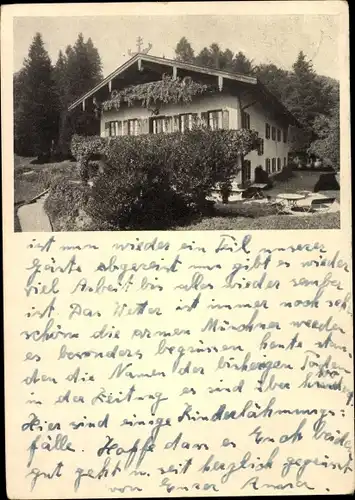 ist nun wieder ein Teil unserer
Gäste abgereist nun gibt es wieder
viel Arbeit bis alles wieder sauber
ist. Das Wetter ist immer noch sehr
schön die armen Münchner werden
es besonders begrüssen heute stan-
den die Namen der bisherigen Toten
in der Zeitung es sind über
Hier sind einige Kinderlähmungs-
fälle. Hoffe dass es Euch beiden
gut geht u. seit herzlich gegrüsst
von Eurer